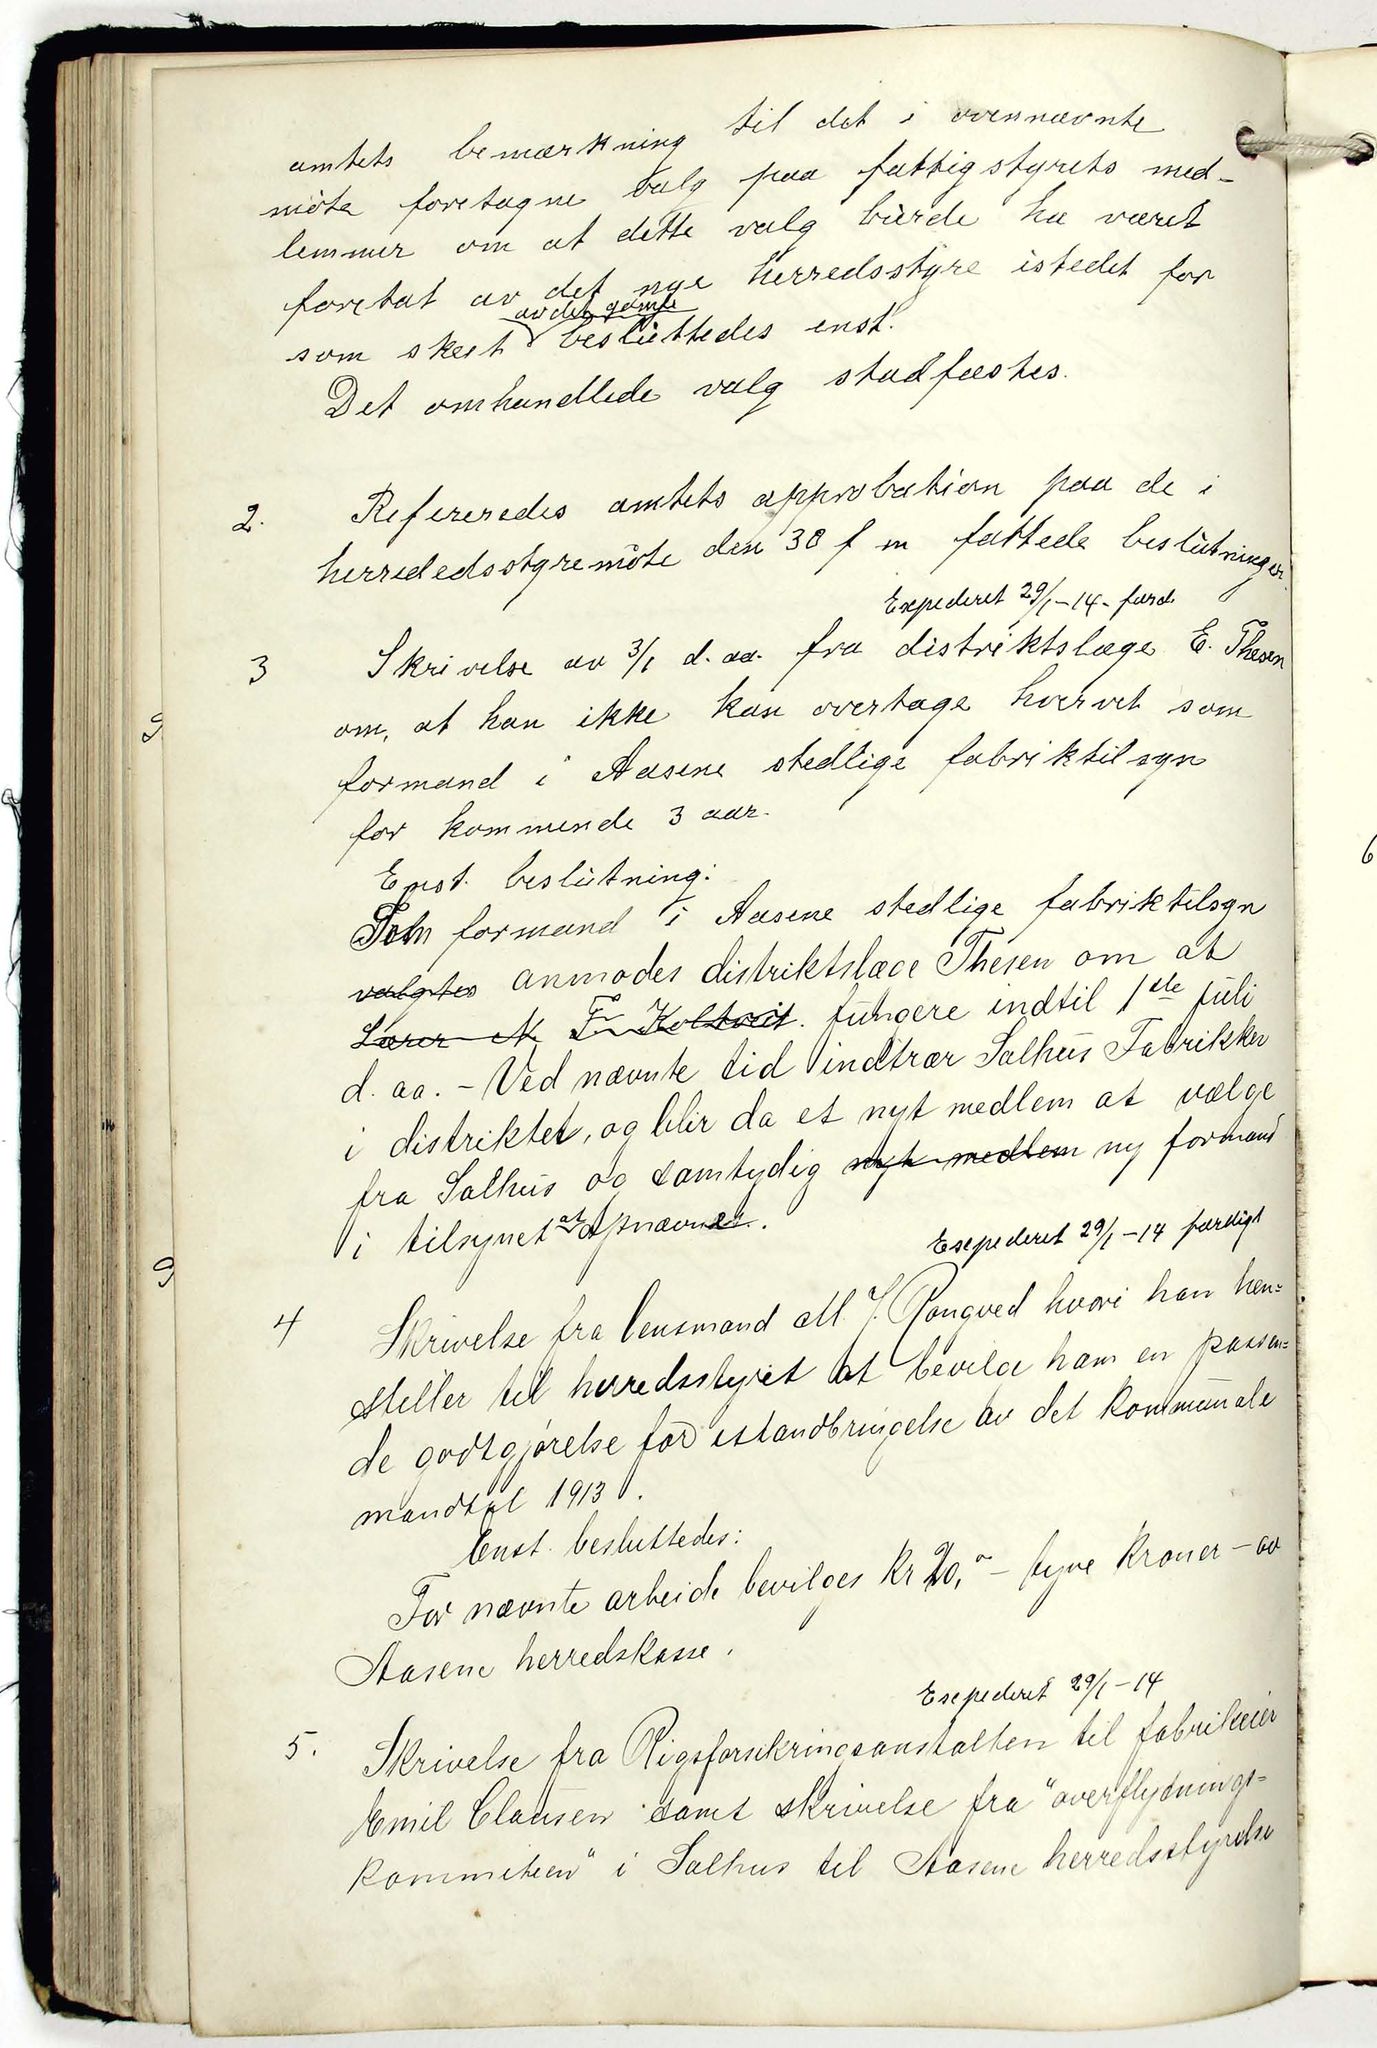 amtets bemærkning til det i ovennævnte
møte foretagne valg paa fattigstyrets med-
lemmer om at dette valg burde ha været
foretat av det nye herredsstyre istedet for
av det gamle
som skeet besluttedes enst.
Det omhandlede valg stadfæstes.
2. Refereredes amtets approbation paa de i
herrededsstyremöte den 30 f m fattede beslutninger.
Expederet 29/1-14- færd.
3 Skrivelse av 3/1 d. aa. fra distriktslæge E. Thesen
om, at han ikke kan overtage hvervet som
formand i Aasene stedlige fabriktilsyn
for kommende 3 aar.
Enst. beslutning:
Som formand i Aasene stedlige fabriktilsyn
valgtes anmodes distriktslæge Thesen om at
Lærer N. F. Koltveit. fungere indtil 1ste juli
d. aa. - Ved nævnte tid indtrær Salhus Fabrikker
i distriktet, og blir da et nyt medlem at vælge
fra Salhus og samtydig nyt medlem ny formand
i tilsynet at opnævnes.
Expederet 29/1-14 færdigt
4 Skrivelse fra lensmand M. J. Rongved hvori han hen=
stiller til herredsstyret at bevilge ham en passen=
de godtgjørelse for istandbringelse av det kommunale
mandtal 1913.
Enst. besluttedes:
For nævnte arbeide bevilges Kr 20,- - tyve kroner - av
Aasene herredskasse.
Expederet 29/1-14
5. Skrivelse fra Rigsforsikringsanstalten til fabrikeier
Emil Clausen samt skrivelse fra "overflytnings=
kommiteen" i Salhus til Aasene herredsstyrelse